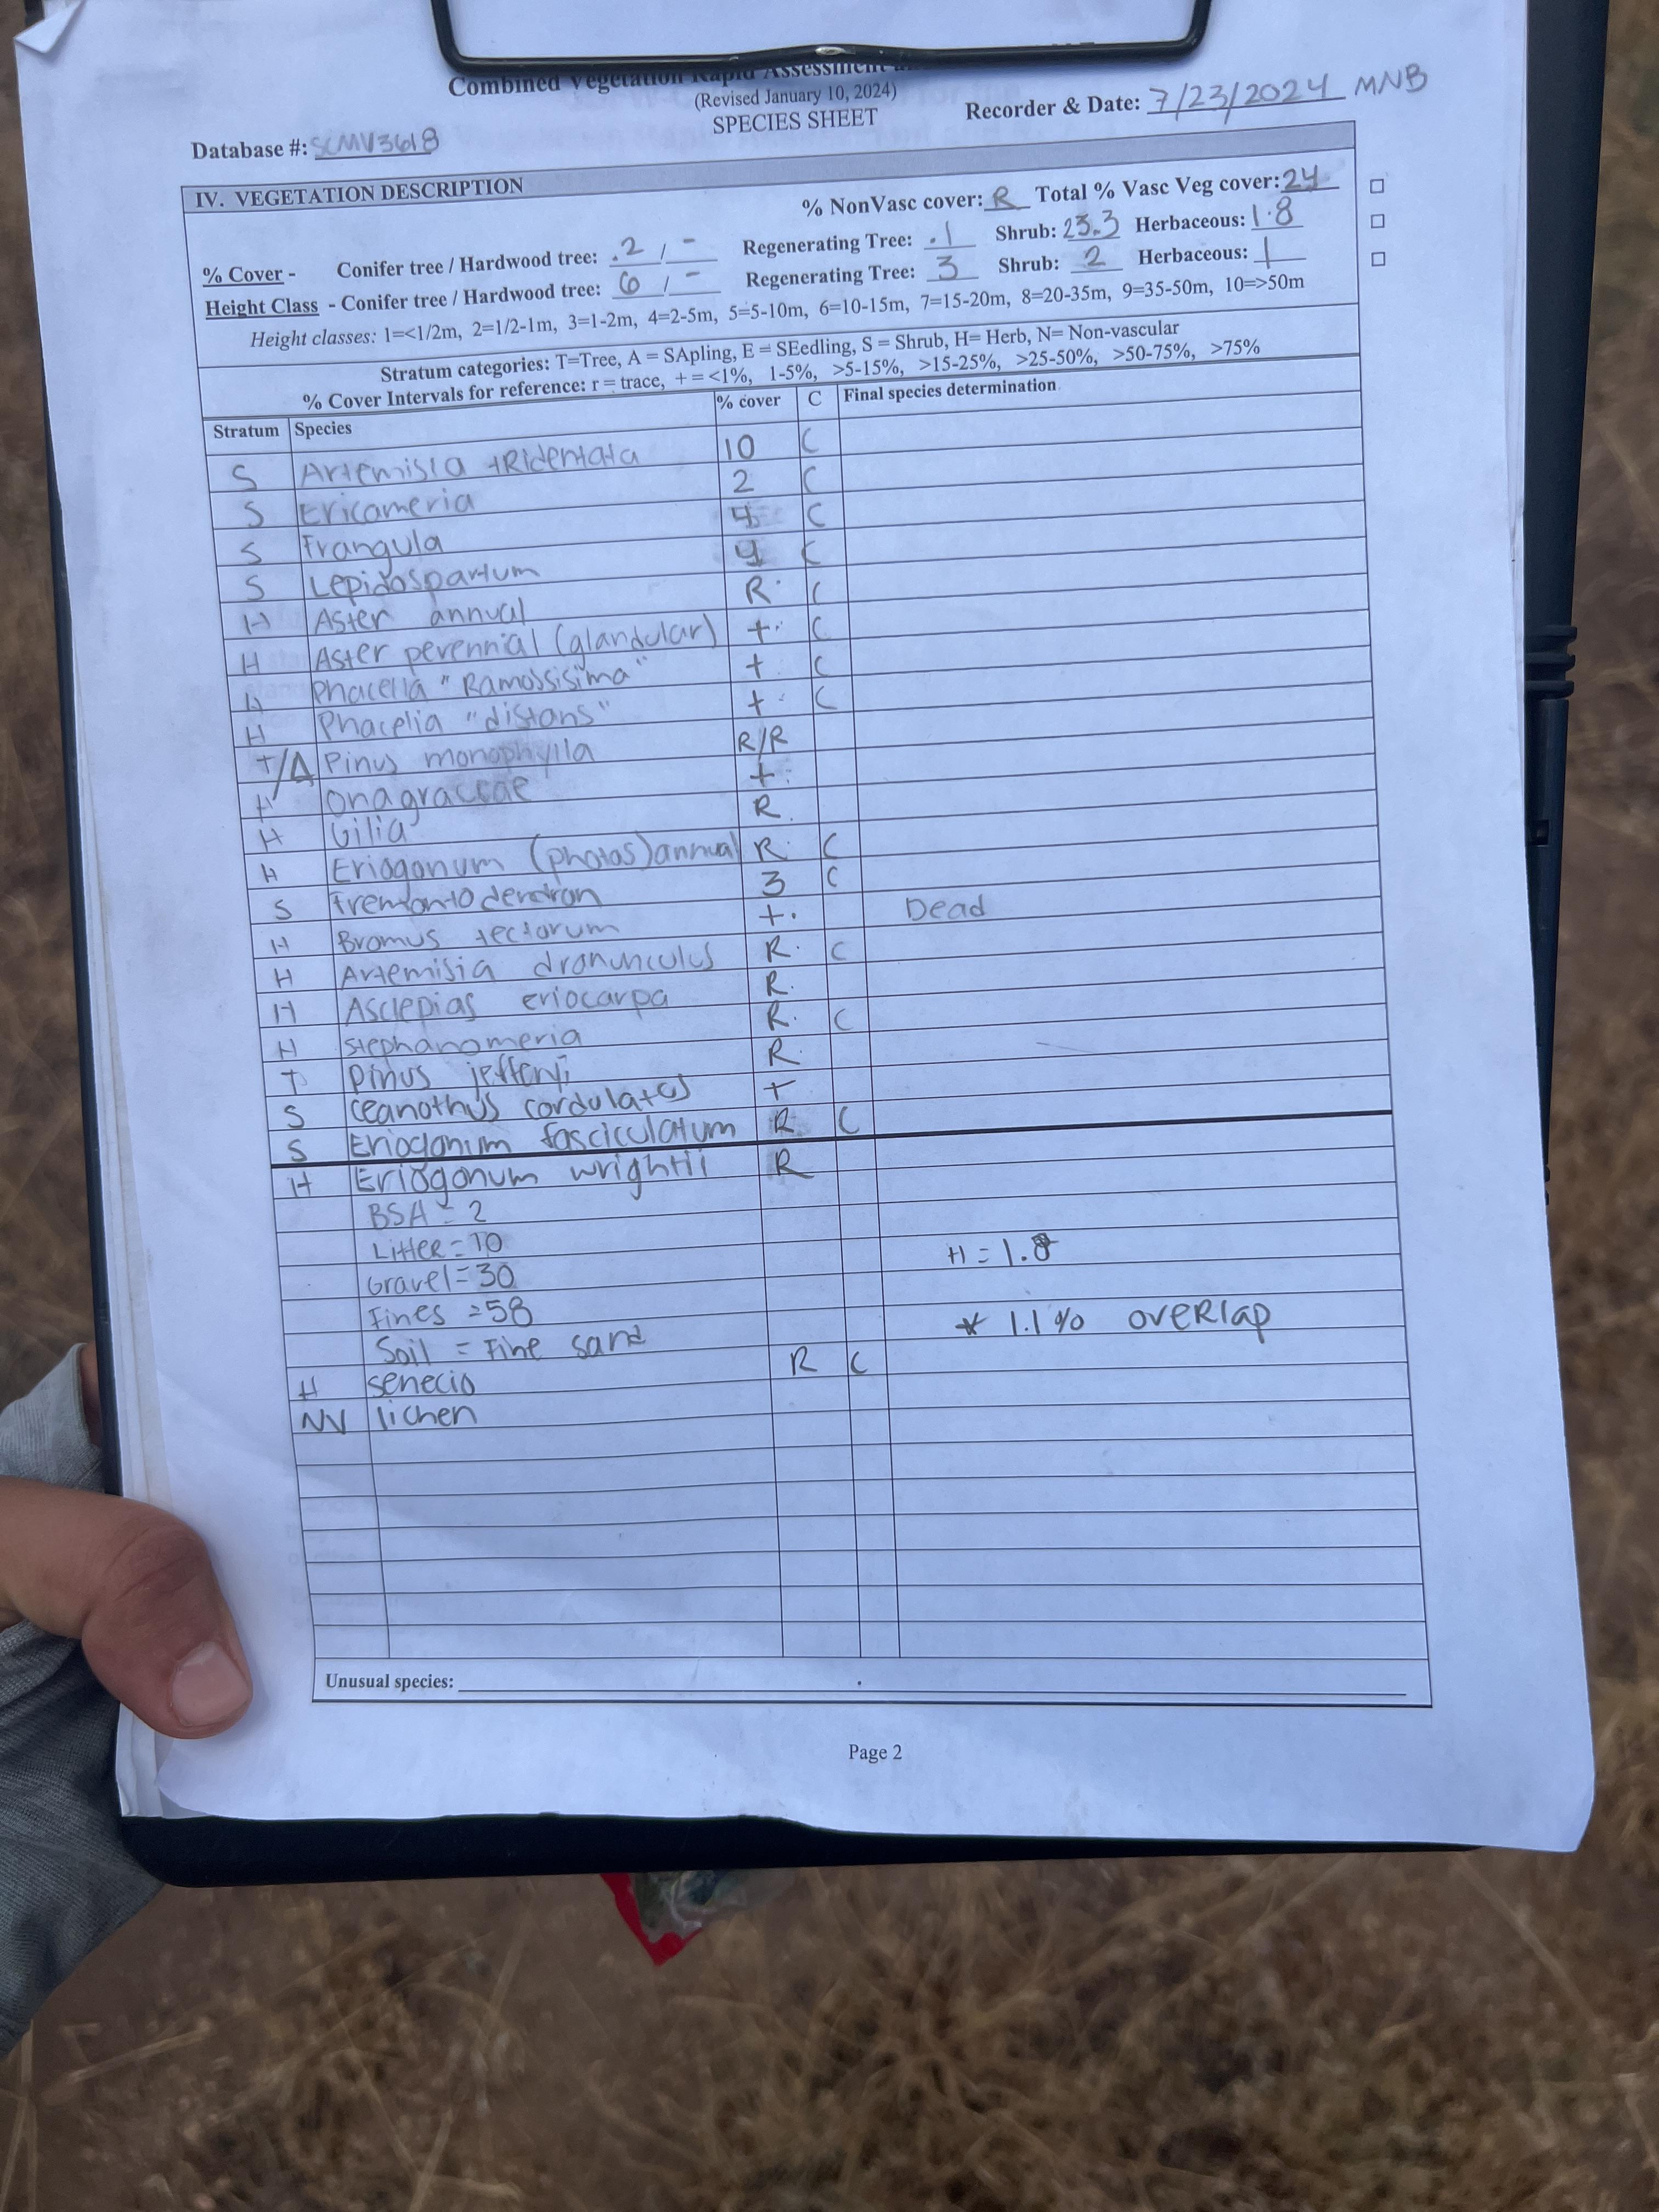 Combined Vegetation Rapid Assessment
(Revised January 10, 2024)
SPECIES SHEET
Recorder & Date: 7/23/2024 MNB
Database #: SCMV3618
IV. VEGETATION DESCRIPTION
% NonVasc cover: R Total % Vasc Veg cover: 24
% Cover - Conifer tree / Hardwood tree: .2 / - Regenerating Tree: .1 Shrub: 23.3 Herbaceous: 1.8
Height Class - Conifer tree / Hardwood tree: 6 / - Regenerating Tree: 3 Shrub: 2 Herbaceous: 1
Height classes: 1=<1/2m, 2=1/2-1m, 3=1-2m, 4=2-5m, 5=5-10m, 6=10-15m, 7=15-20m, 8=20-35m, 9=35-50m, 10=>50m
Stratum categories: T=Tree, A = SApling, E = SEedling, S = Shrub, H= Herb, N= Non-vascular
% Cover Intervals for reference: r = trace, + = <1%, 1-5%, >5-15%, >15-25%, >25-50%, >50-75%, >75%
Stratum Species % cover C Final species determination
S Artemisia tRidentata 10 C
S Ericameria 2 C
S Frangula 4 C
S Lepidospartum 4 C
H Aster annual R C
H Aster perennial (glandular) + C
H Phacelia "Ramossisima" + C
H Phacelia "distans" + C
T/A Pinus monophylla R/R
H onagraceae +
H Gilia R
H Eriogonum (photos) annual R C
S Fremontodendron 3 C
H Bromus tectorum + Dead
H Artemisia dranunculus R C
H Asclepias eriocarpa R
H stephanomeria R C
T pinus jefferyi R
S ceanothus cordulatus +
S Eriogonum fasciculatum R C
H Eriogonum wrightii R
BSA = 2
Litter = 10
Gravel = 30 H = 1.8
Fines = 58
Soil = Fine sand * 1.1% oveRlap
H senecio R C
NV lichen
Unusual species:
Page 2